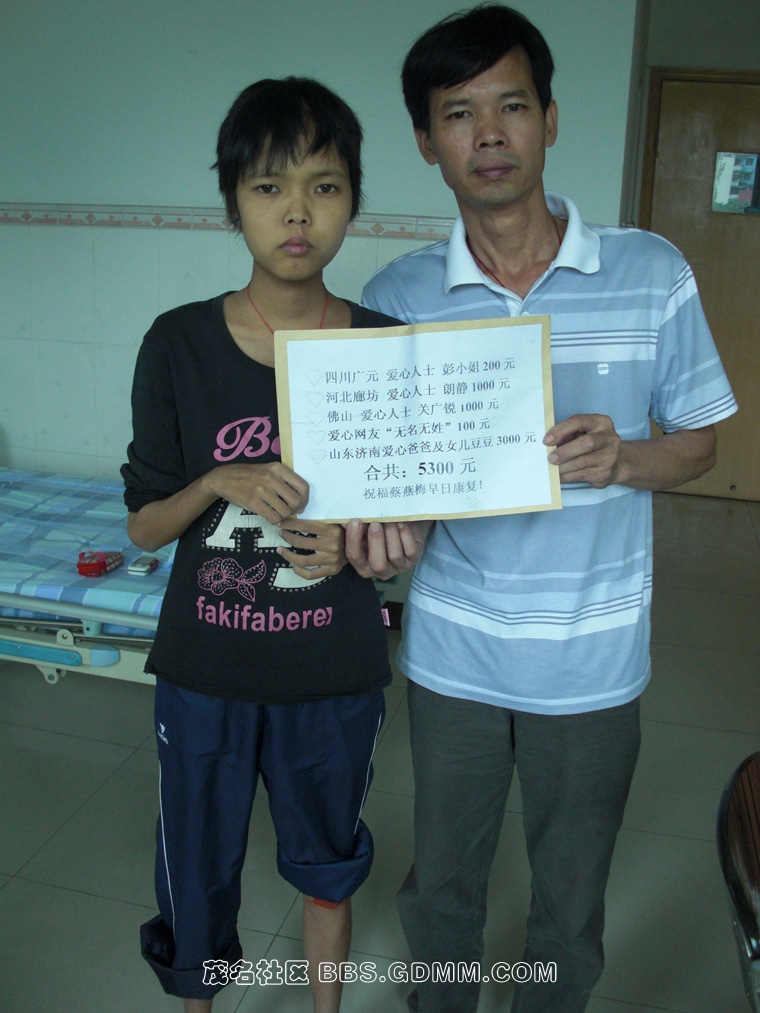 四川广元 爱心人士 彭小姐 200 元
河北廊坊 爱心人士 朗静 1000 元
佛山 爱心人士 关广锐 1000 元
爱心网友“无名无姓”100 元
山东济南爱心爸爸及女儿豆豆 3000 元
合共：5300 元
祝福蔡燕梅早日康复!
fakifabere
茂名社区 BBS.GDMM.COM